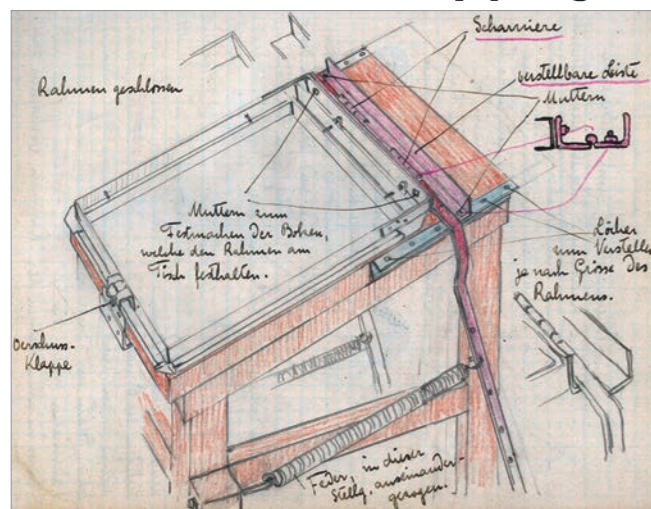 Scharniere
Rahmen geschlossen
verstellbare Leiste
Muttern
Muttern zum
Festmachen der Bolzen,
welche den Rahmen am
Tisch festhalten.
Löcher
zum Verstellen
je nach Grösse des
Rahmens.
Verschluss-
Klappe
Feder, in dieser
Stellg. auseinander-
gezogen.